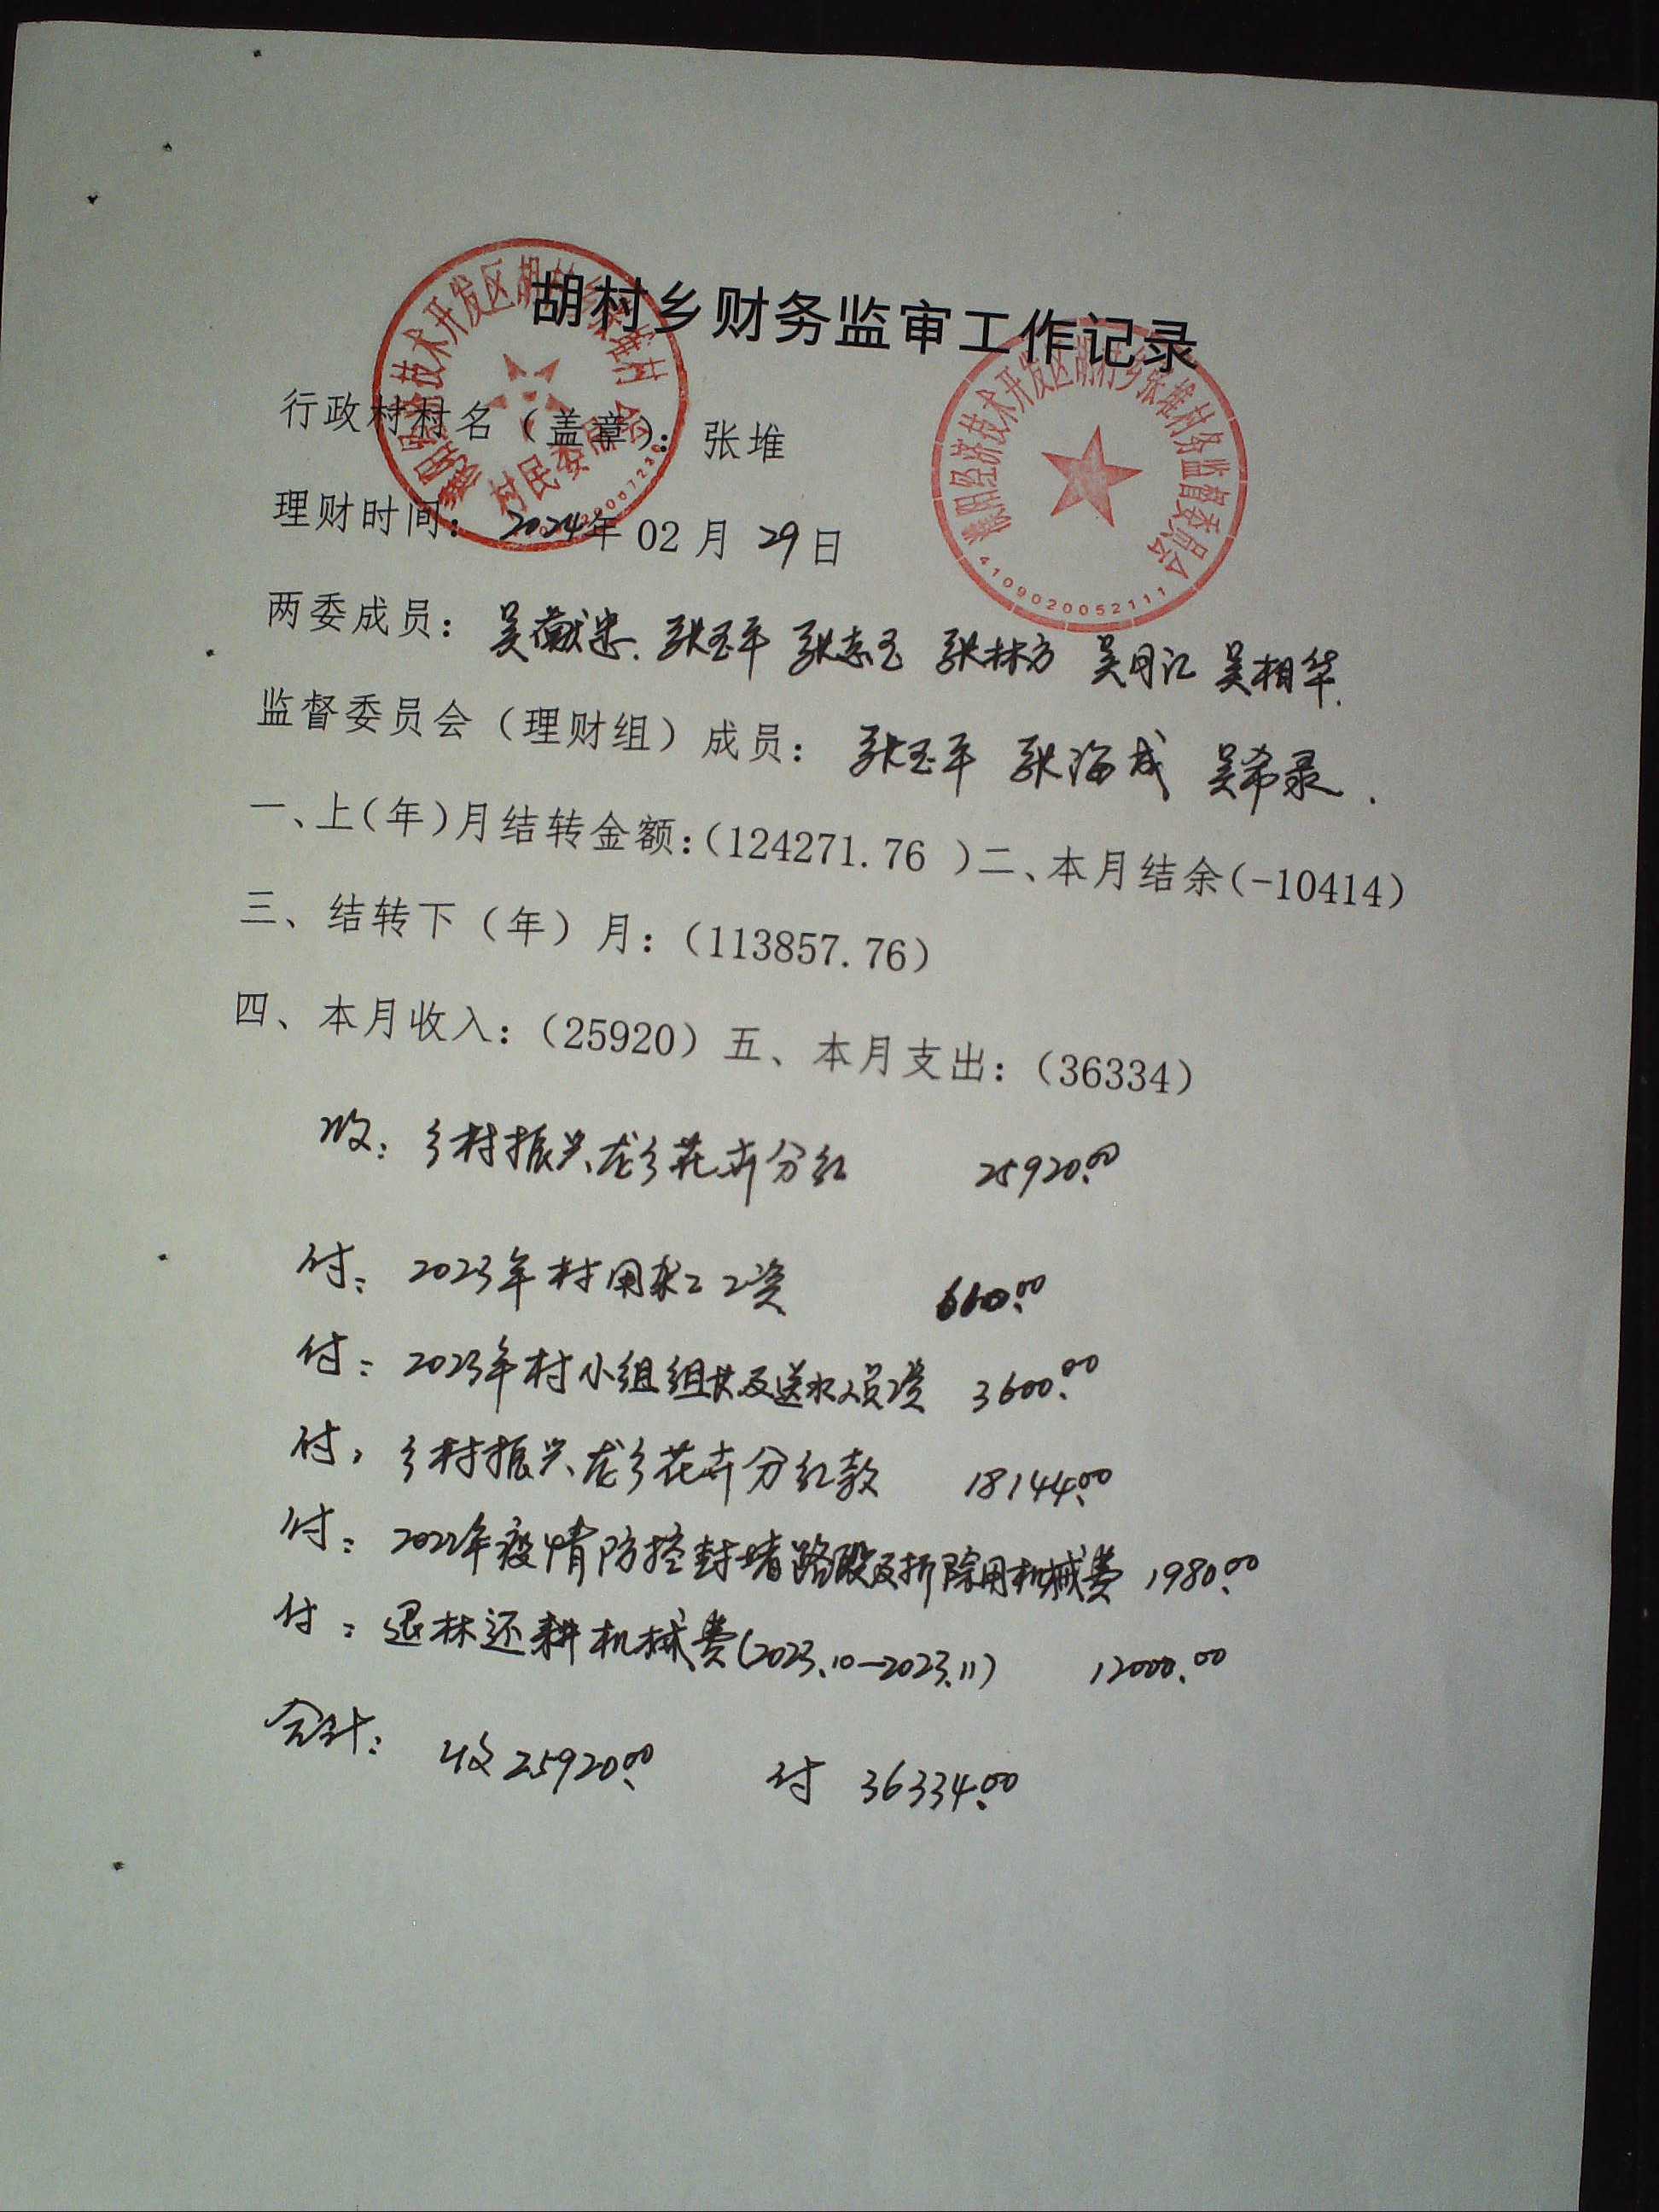 胡村乡财务监审工作记录
行政村村名（盖章）：张堆
理财时间：2024年02月29日
两委成员：吴献忠、张玉平 张志玉 张林方 吴月江 吴相华.
监督委员会（理财组）成员：张玉平 张海成 吴希录.
一、上(年)月结转金额：(124271.76 )二、本月结余(-10414)
三、结转下（年）月：(113857.76)
四、本月收入：(25920) 五、本月支出：(36334)
收：乡村振兴龙乡花卉分红 25920.00
付：2023年村用工资 610.00
付：2023年村小组组长及送水人员工资 3600.00
付：乡村振兴龙乡花卉分红款 18144.00
付：2022年疫情防控封堵路段及拆除用机械费 1980.00
付：退林还耕机械费(2023.10—2023.11) 12000.00
合计：收25920.00 付 36334.00
濮阳经济技术开发区胡村乡张堆村
村民委员会
濮阳经济技术开发区胡村乡张堆村务监督委员会
4109020052111